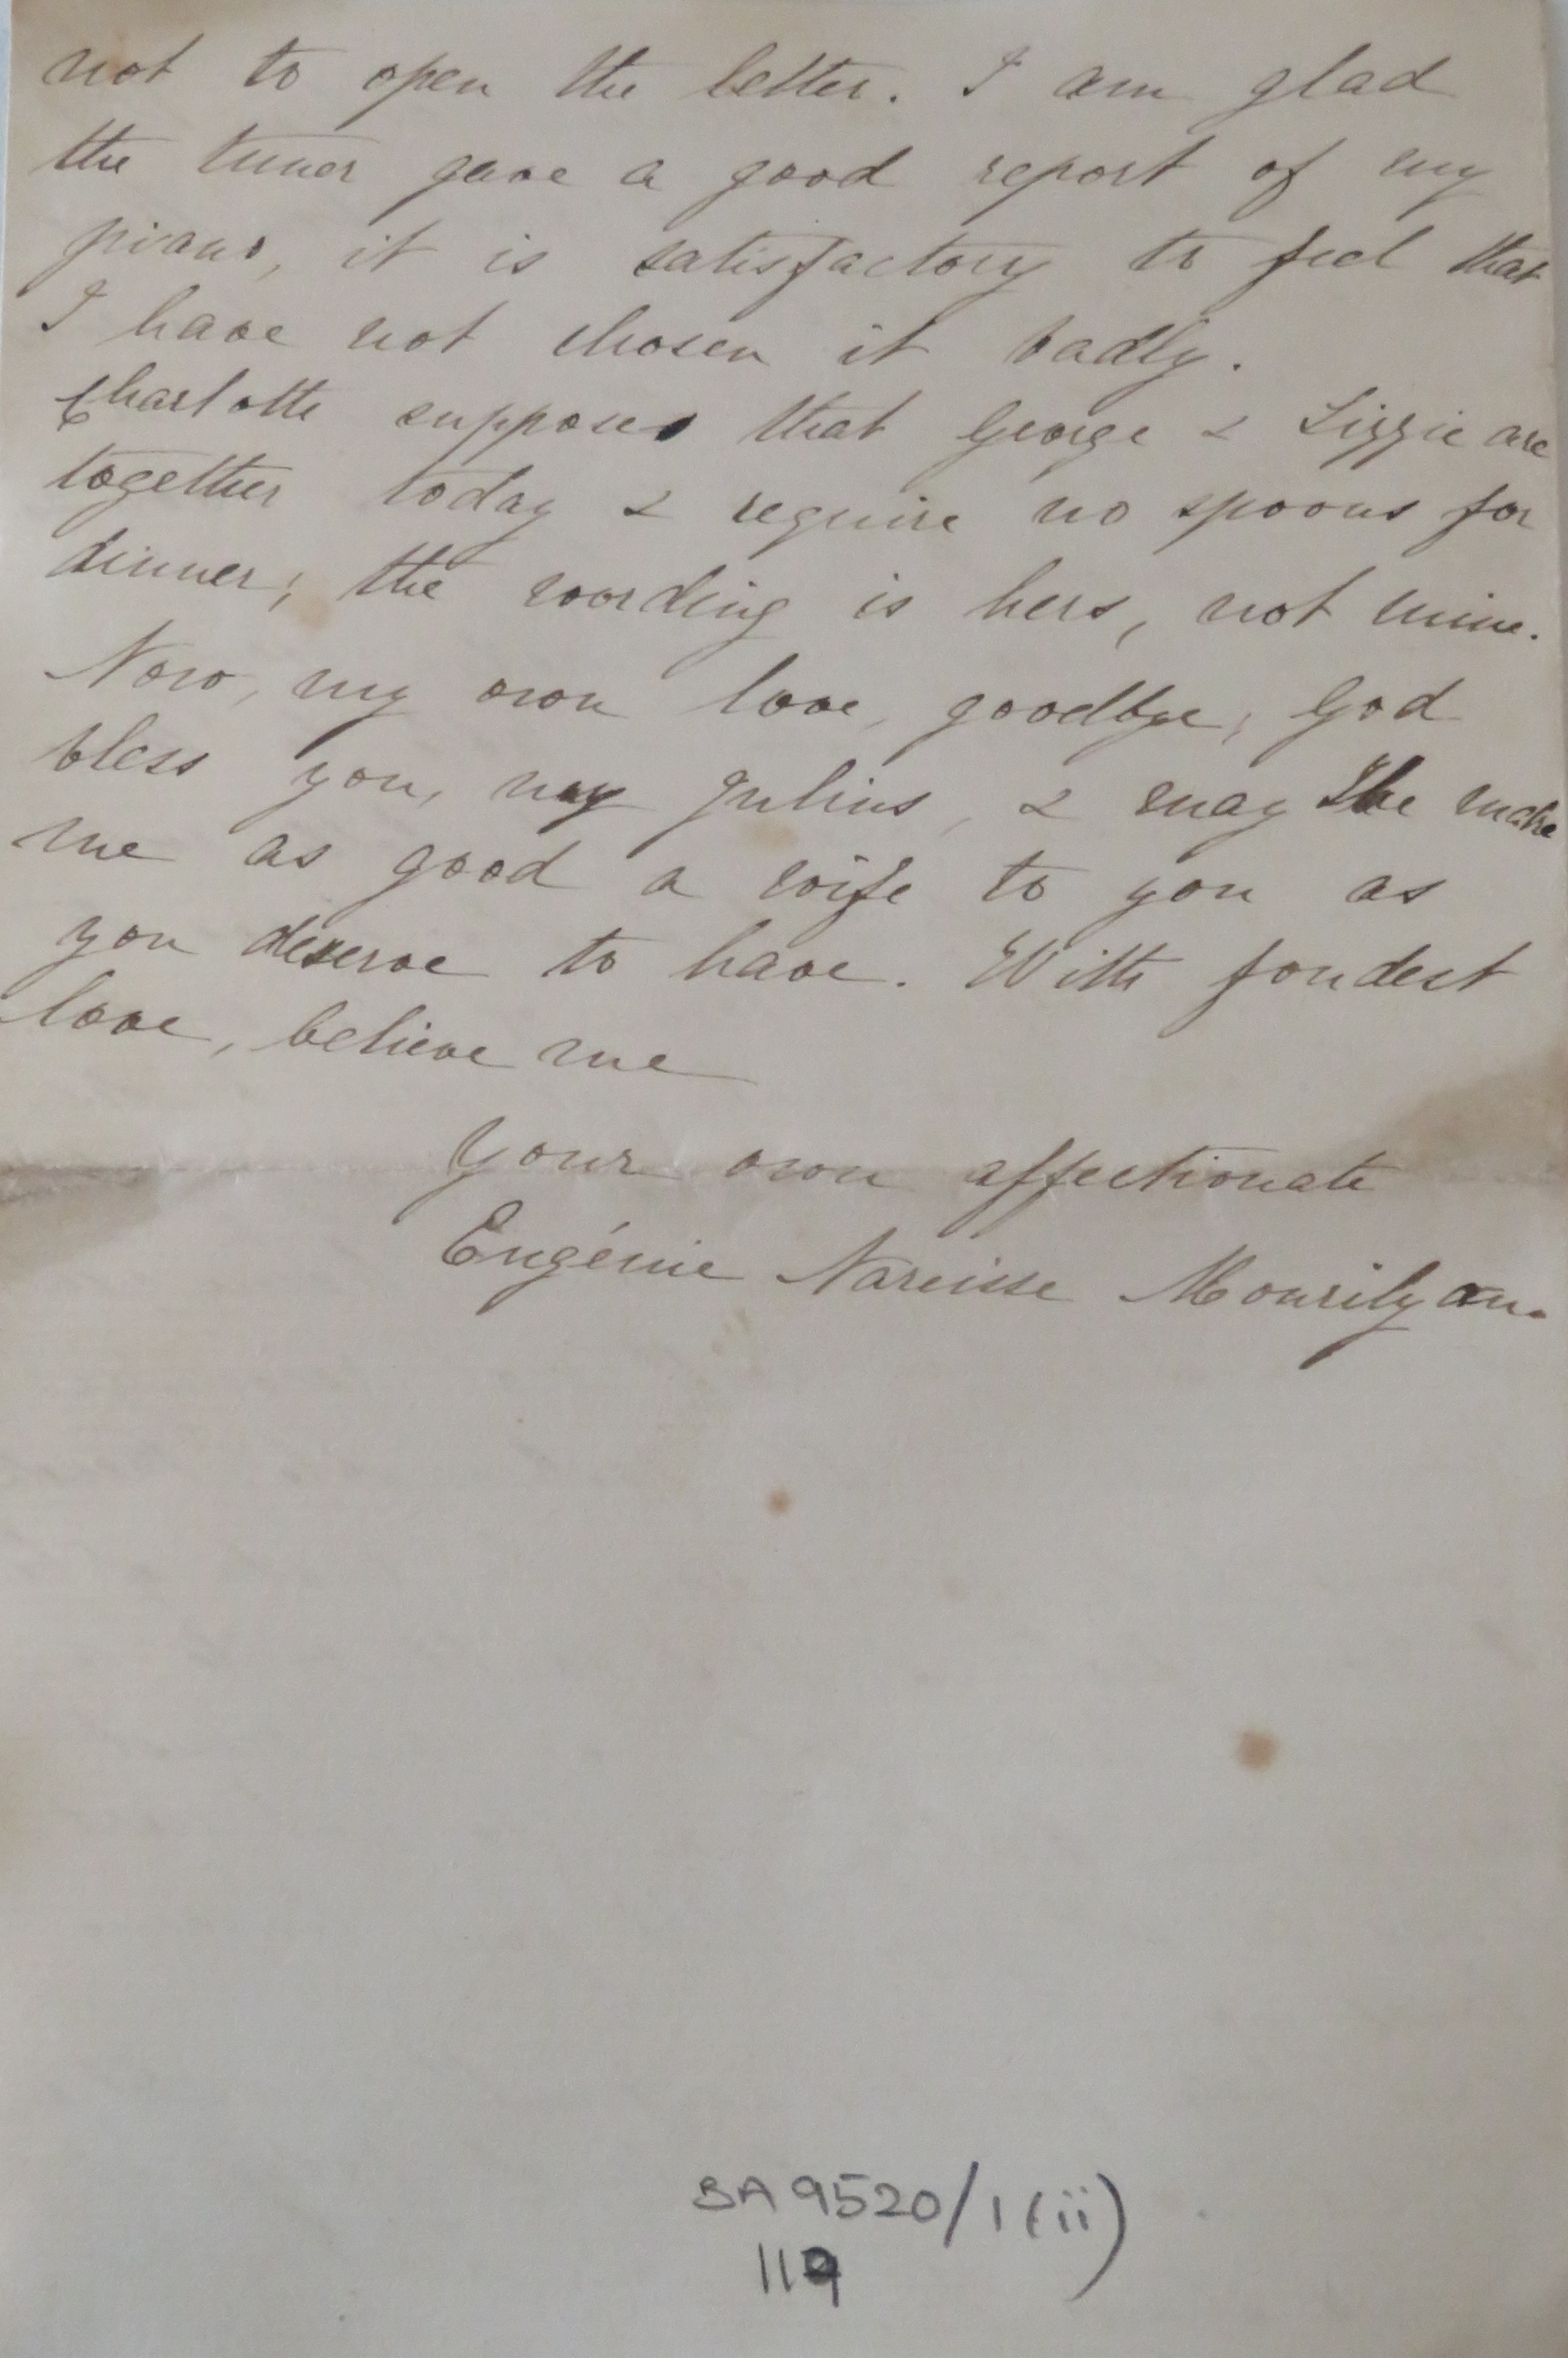 not to open the letter. I am glad
the tuner gave a good report of my
piano, it is satisfactory to feel that
I have not chosen it badly.
Charlotte supposes that George & Lizzie are
together today & require no spoons for
dinner; the wording is hers, not mine.
Now, my own love, goodbye, God
bless you, my Julius, & may He make
me as good a wife to you as
you deserve to have. With fondest
love, believe me
Your own affectionate
Eugénie Narcisse Mourilyan.
BA 9520/1(ii)
119